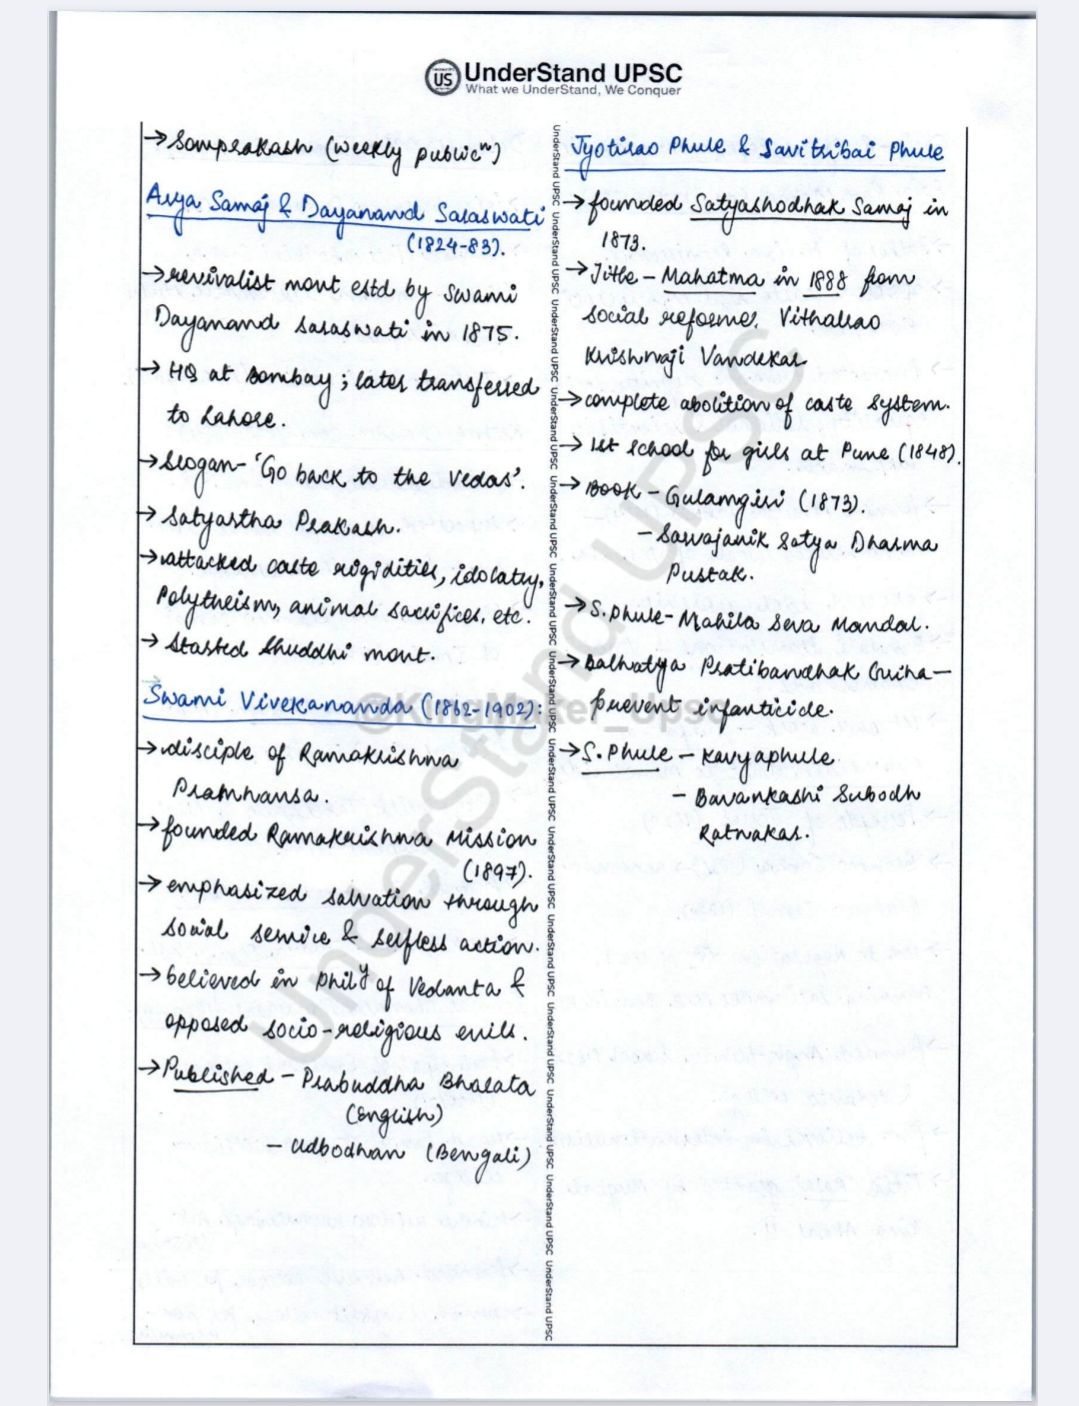 UnderStand UPSC
What we UnderStand, We Conquer
→ Somprakash (weekly publicⁿ)
Arya Samaj & Dayanand Saraswati
(1824-83).
→ revivalist movt estd by Swami
Dayanand Saraswati in 1875.
→ HQ at Bombay ; later transferred
to Lahore.
→ Slogan- 'Go back to the Vedas'.
→ Satyartha Prakash.
→ attacked caste rigidities, idolatry,
Polytheism, animal sacrifices, etc.
→ Started Shuddhi movt.
Swami Vivekananda (1862-1902):
→ disciple of Ramakrishna
Pramhansa.
→ founded Ramakrishna Mission
(1897).
→ emphasized salvation through
social service & selfless action.
→ believed in philʸ of Vedanta &
opposed socio-religious evils.
→ Published - Prabuddha Bharata
(English)
- Udbodhan (Bengali)
Jyotirao Phule & Savitribai Phule
→ founded Satyashodhak Samaj in
1873.
→ Title - Mahatma in 1888 from
social reformer Vithalrao
Krishnaji Vandekar
→ complete abolition of caste system.
→ 1st school for girls at Pune (1848).
→ Book - Gulamgiri (1873).
- Sarvajanik Satya Dharma
Pustak.
→ S. Phule - Mahila Seva Mandal.
→ Balhatya Pratibandhak Griha -
prevent infanticide.
→ S. Phule - Kavyaphule
- Bavankashi Subodh
Ratnakar.
UnderStand UPSC
@KingMaker_Upsc